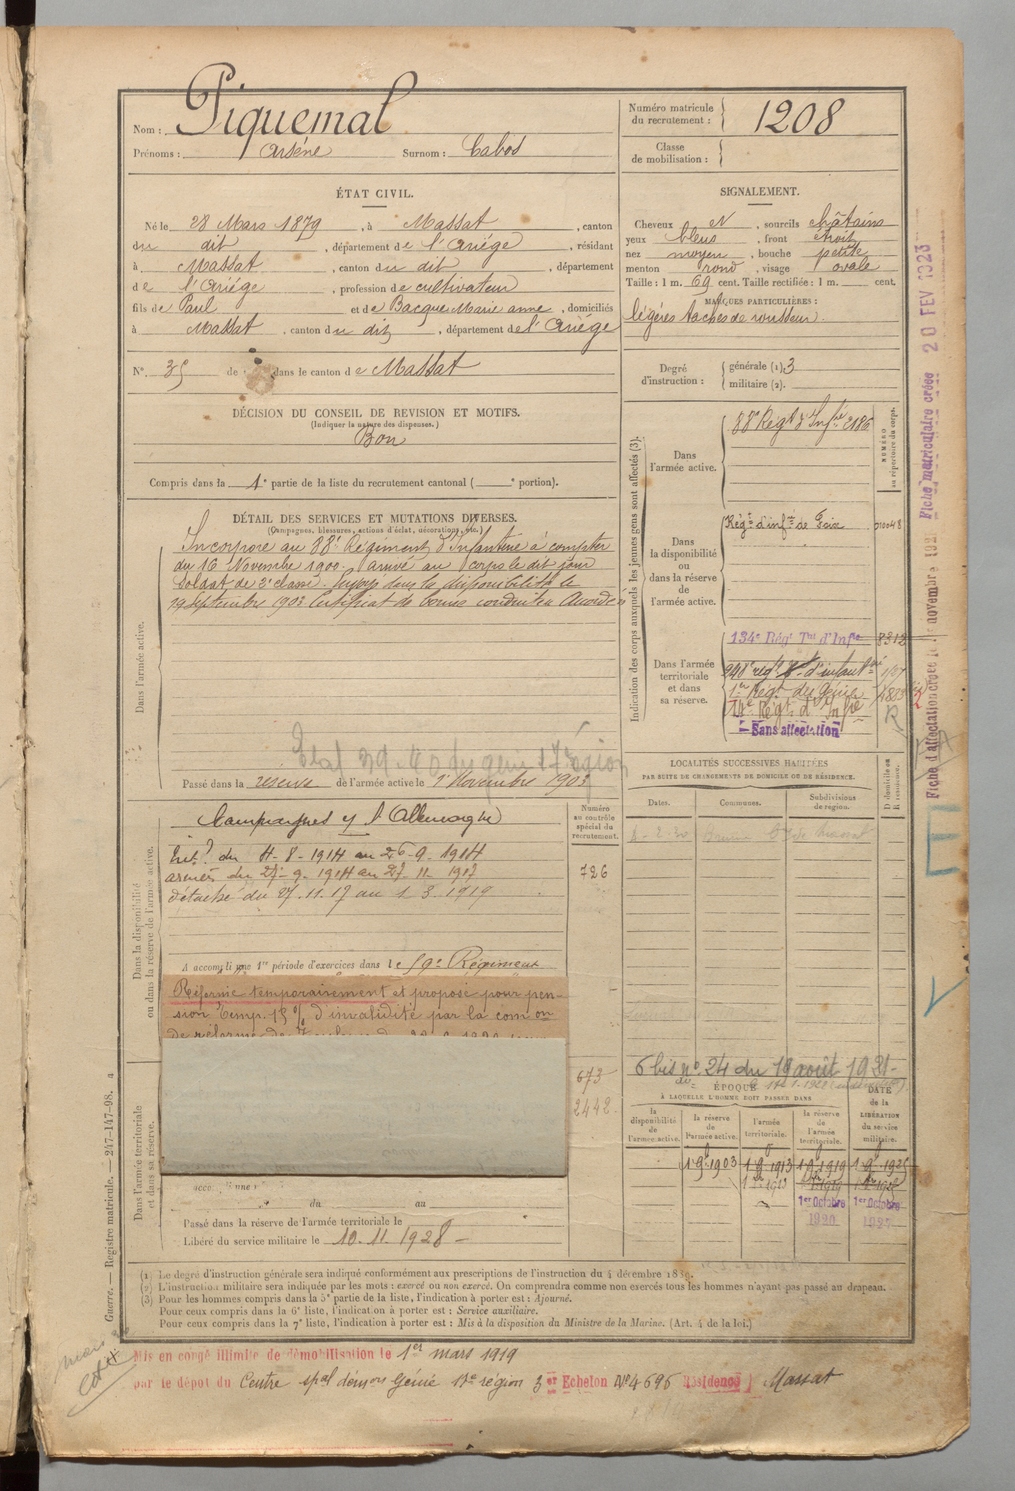 Nom : Piquemal
Prénoms : Arsène Surnom : Cabos
Numéro matricule du recrutement : 1208
Classe de mobilisation :
ÉTAT CIVIL.
Né le 28 Mars 1879, à Massat, canton
du dit, département de l'Ariège, résidant
à Massat, canton du dit, département
de l'Ariège, profession de cultivateur
fils de Paul et de Bacque Marie anne, domiciliés
à Massat, canton du dit, département de l'Ariège
N° 35 de dans le canton de Massat
SIGNALEMENT.
Cheveux et, sourcils châtains
yeux bleus, front étroit
nez moyen, bouche petite
menton rond, visage ovale
Taille : 1 m. 69 cent. Taille rectifiée : 1 m. cent.
MARQUES PARTICULIÈRES :
légères taches de rousseur.
Degré d'instruction : générale (1). 3
militaire (2).
DÉCISION DU CONSEIL DE REVISION ET MOTIFS.
(Indiquer la nature des dispenses.)
Bon
Compris dans la 1e partie de la liste du recrutement cantonal ( e portion).
DÉTAIL DES SERVICES ET MUTATIONS DIVERSES.
(Campagnes, blessures, actions d'éclat, décorations, etc.)
Dans l'armée active.
Incorporé au 88e Régiment d'Infanterie à compter
du 16 Novembre 1900. arrivé au corps le dit jour
Soldat de 2e classe. Envoyé dans la disponibilité le
19 Septembre 1903 Certificat de bonne conduite Accordé
Etat 39-40 du génie 17e région
Passé dans la réserve de l'armée active le 1er Novembre 1903
Indication des corps auxquels les jeunes gens sont affectés (3).
NUMÉRO au répertoire du corps.
Dans l'armée active.
88e Régt d'Infie 2186
Dans la disponibilité ou dans la réserve de l'armée active.
Régt d'infie de Foix 010048
Dans l'armée territoriale et dans sa réserve.
134e Régt Tal d'Infie 8312
1er Régt du Génie
Sans affectation
LOCALITÉS SUCCESSIVES HABITÉES
PAR SUITE DE CHANGEMENTS DE DOMICILE OU DE RÉSIDENCE.
Dates. Communes. Subdivisions de région. D domicile ou R résidence.
Dans la disponibilité ou dans la réserve de l'armée active.
Numéro au contrôle spécial du recrutement.
Campagnes c/ l'Allemagne
Int. du 4-8-1914 au 26-9-1914
armées du 27-9-1914 au 27-11-1917
détaché du 27.11.17 au 1 3 1919
726
A accompli une 1re période d'exercices dans le 59e Régiment
Réformé temporairement et proposé pour pen-
sion temp. 15 % d'invalidité par la comon
de réforme de
673
2442
6 bis n° 24 du 19 août 1921
Dans l'armée territoriale et dans sa réserve.
ÉPOQUE
À LAQUELLE L'HOMME DOIT PASSER DANS
la disponibilité de l'armée active. la réserve de l'armée active. l'armée territoriale. la réserve de l'armée territoriale. DATE de la LIBÉRATION du service militaire.
1 9bre 1903 1 9bre 1913 1 9bre 1919 1 9bre 1925
1er Octobre 1920 1er Octobre
du au
Passé dans la réserve de l'armée territoriale le
Libéré du service militaire le 10.11.1928
(1) Le degré d'instruction générale sera indiqué conformément aux prescriptions de l'instruction du 4 décembre 1889.
(2) L'instruction militaire sera indiquée par les mots : exercé ou non exercé. On comprendra comme non exercés tous les hommes n'ayant pas passé au drapeau.
(3) Pour les hommes compris dans la 5e partie de la liste, l'indication à porter est : Ajourné.
Pour ceux compris dans la 6e liste, l'indication à porter est : Service auxiliaire.
Pour ceux compris dans la 7e liste, l'indication à porter est : Mis à la disposition du Ministre de la Marine. (Art. 4 de la loi.)
Mis en congé illimité de démobilisation le 1er mars 1919
par le dépot du Centre spal démon Génie 17e région 3er Echelon N° 4696 Résidence Massat
Guerre. — Registre matricule. — 247-147-98.
Fiche matriculaire créée 20 FEV 1923
Fiche d'affectation créée le novembre 192